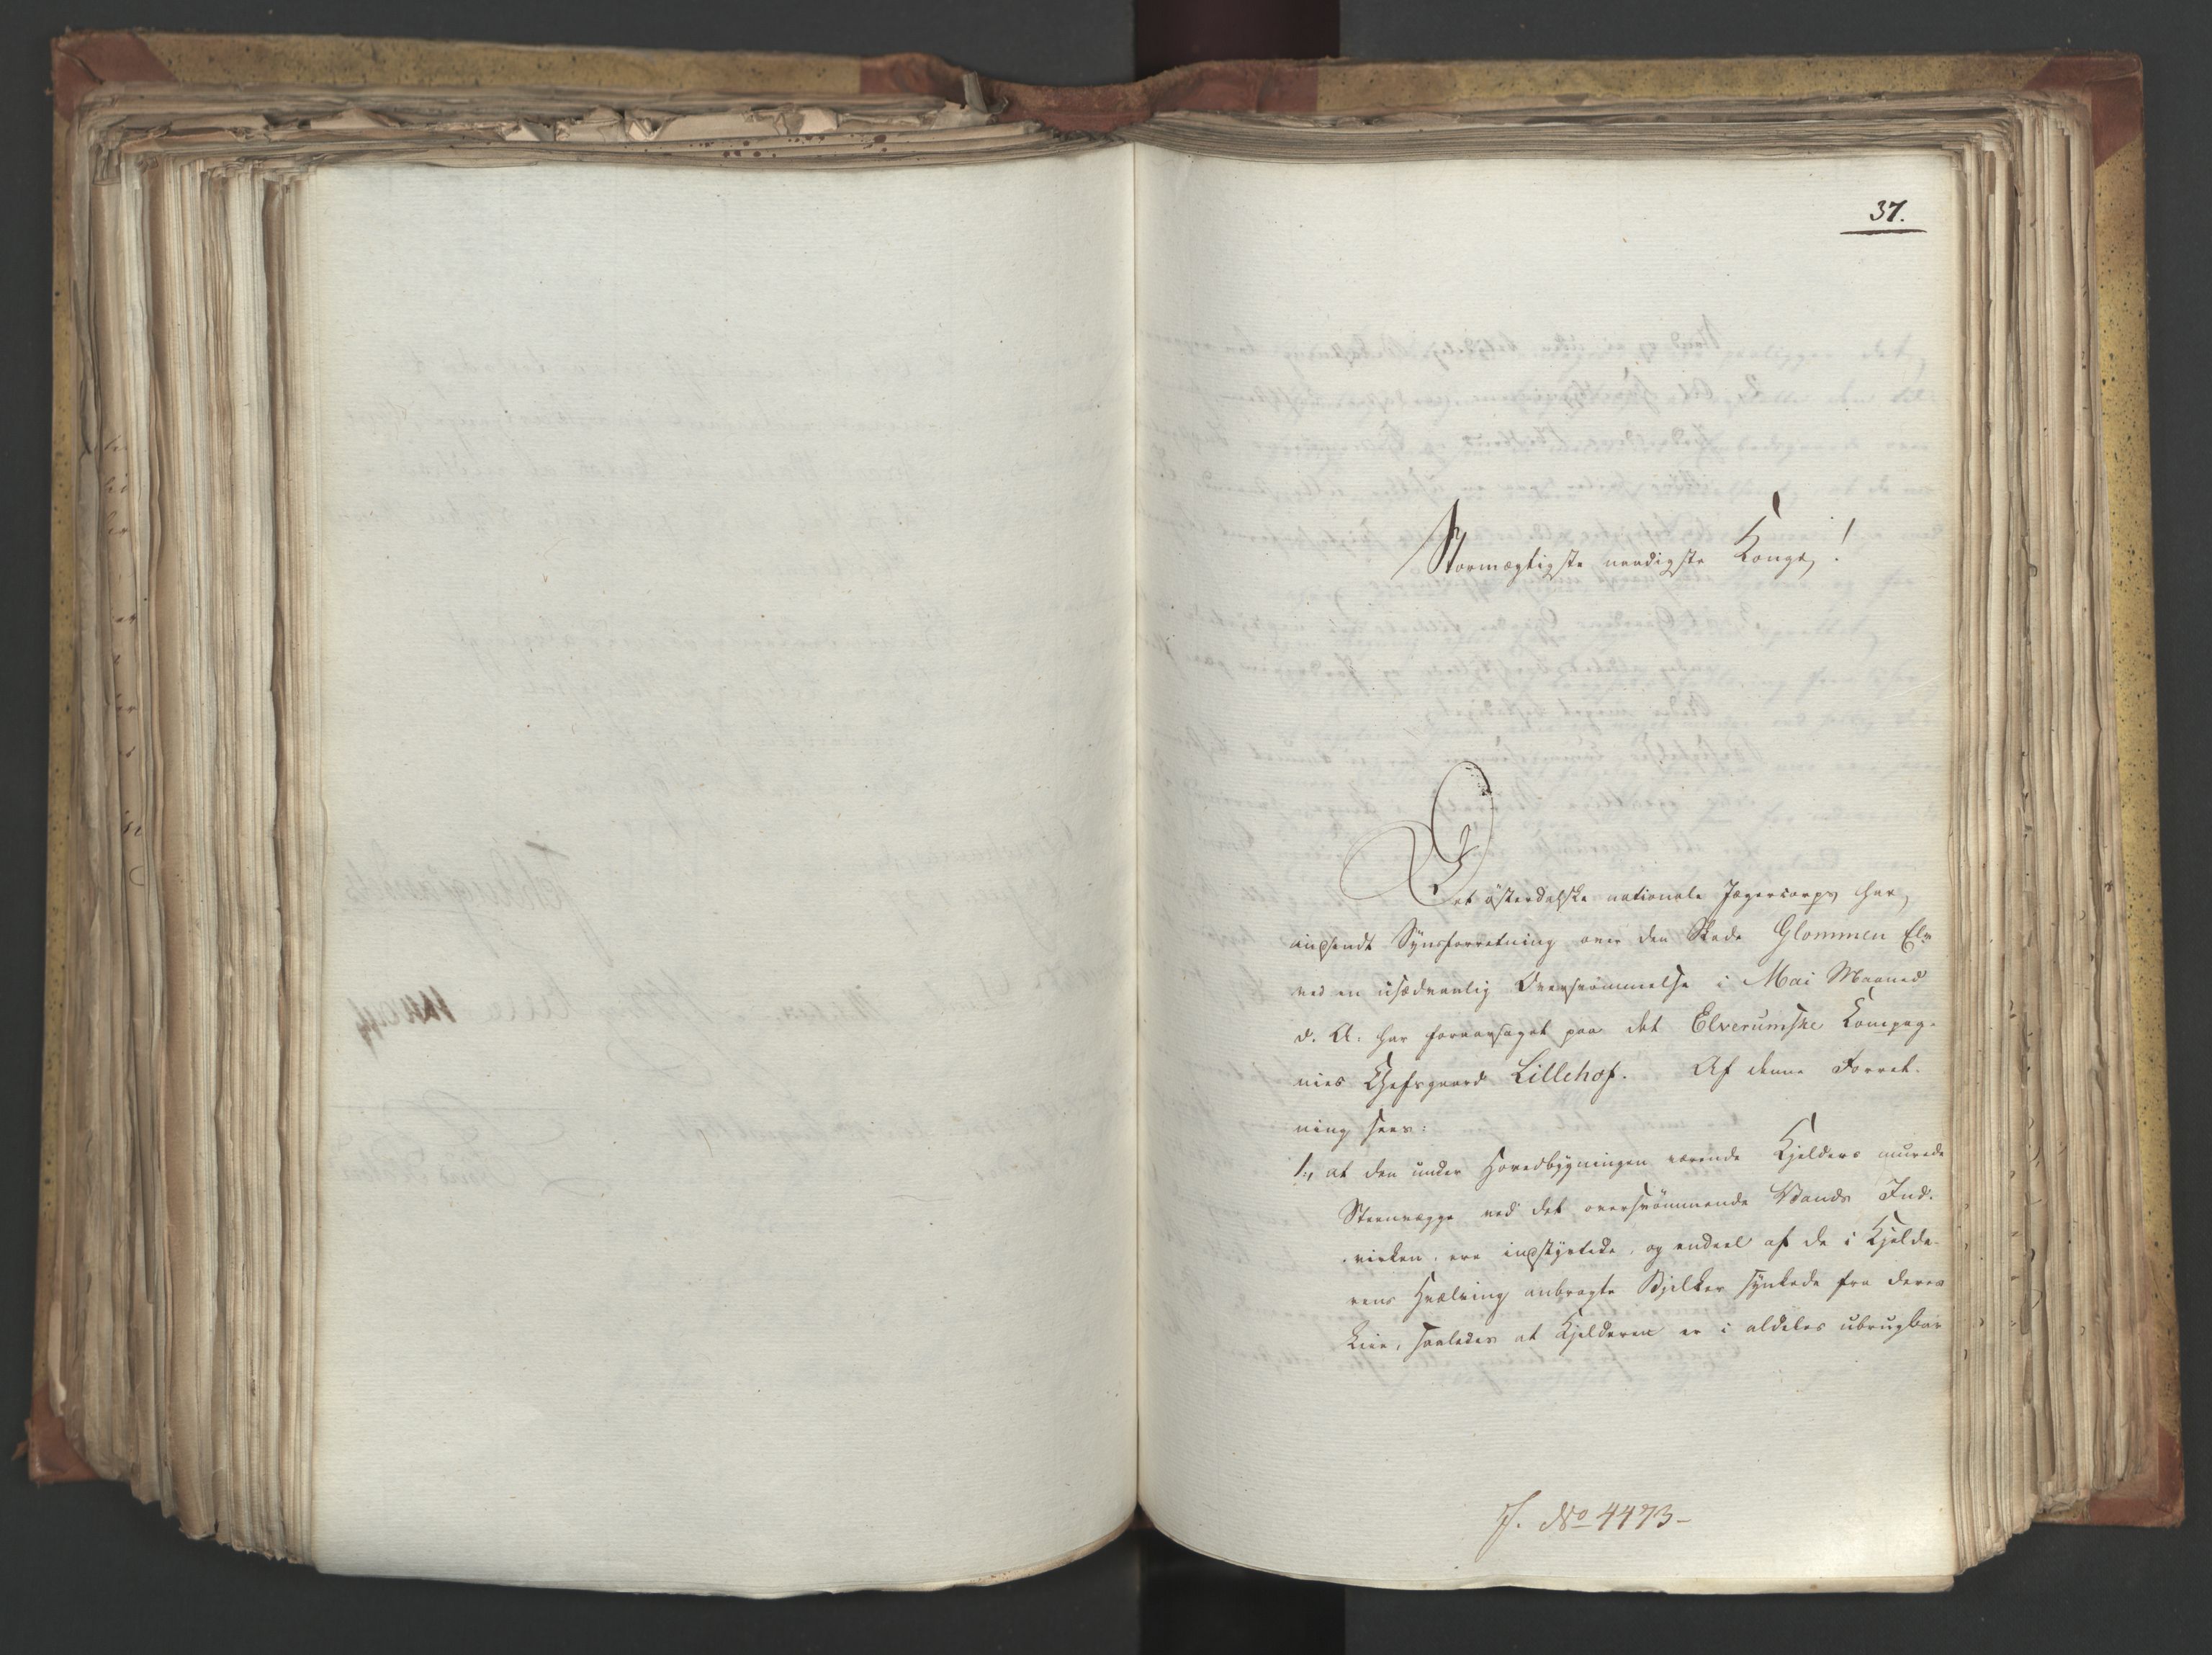 37.
Stormægtigste naadigste Konge!
Det østerdalske nationale Jægercorps har
indsendt Synsforretning over den Skade Glommen Elv
ved en usædvanlig Oversvømmelse i Mai Maaned
d. A: har foraarsaget paa det Elverumske Kompag-
nies Chefsgaard Lillehof. Af denne Forret-
ning sees:
1., at den under Hovedbygningen værende Kjelders murede
Steenvægge ved det oversvømmende Vands Ind-
virken ere indstyrtede, og endeel af de i Kjelde-
rens Hvælving anbragte Bjelker synkede fra deres
Leie, saaledes at Kjelderen er i aldeles ubrugbar
J. No 4473-